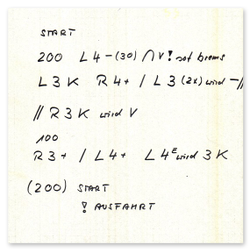 START
200 L4-(30) ∩V! sof brems
L3K R4+ / L3(2x) wird -//
// R3K wird V
100
R3+ / L4+ L4ᴱ wird 3K
(200) START
! AUSFAHRT